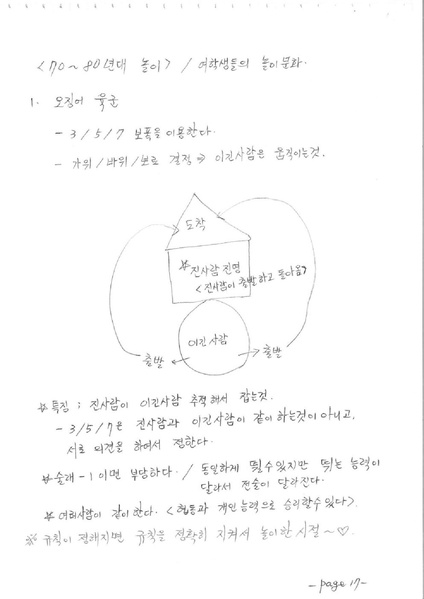 <70~80년대 놀이> / 여학생들의 놀이문화.
1. 오징어 육군
- 3/5/7 보폭을 이용한다.
- 가위/바위/보로 결적 ⇒ 이긴사람은 움직이는것.
도착
* 진사람 진영
<진사람이 출발하고 돌아옴>
이긴사람
출발
출발
* 특징 : 진사람이 이긴사람 추적해서 잡는것.
- 3/5/7은 진사람과 이긴사람이 같이 하는것이 아니고,
서로 의견을 하여서 정한다.
* 술래 - 1이면 부당하다. / 동일하게 뛸수있지만 뛰는 능력이
달라서 전술이 달라진다.
* 여러사람이 같이한다. <협동과 개인능력으로 승리할수있다>
※ 규칙이 정해지면 규칙을 정확히 지켜서 놀이한 시절~♡.
- page 17 -